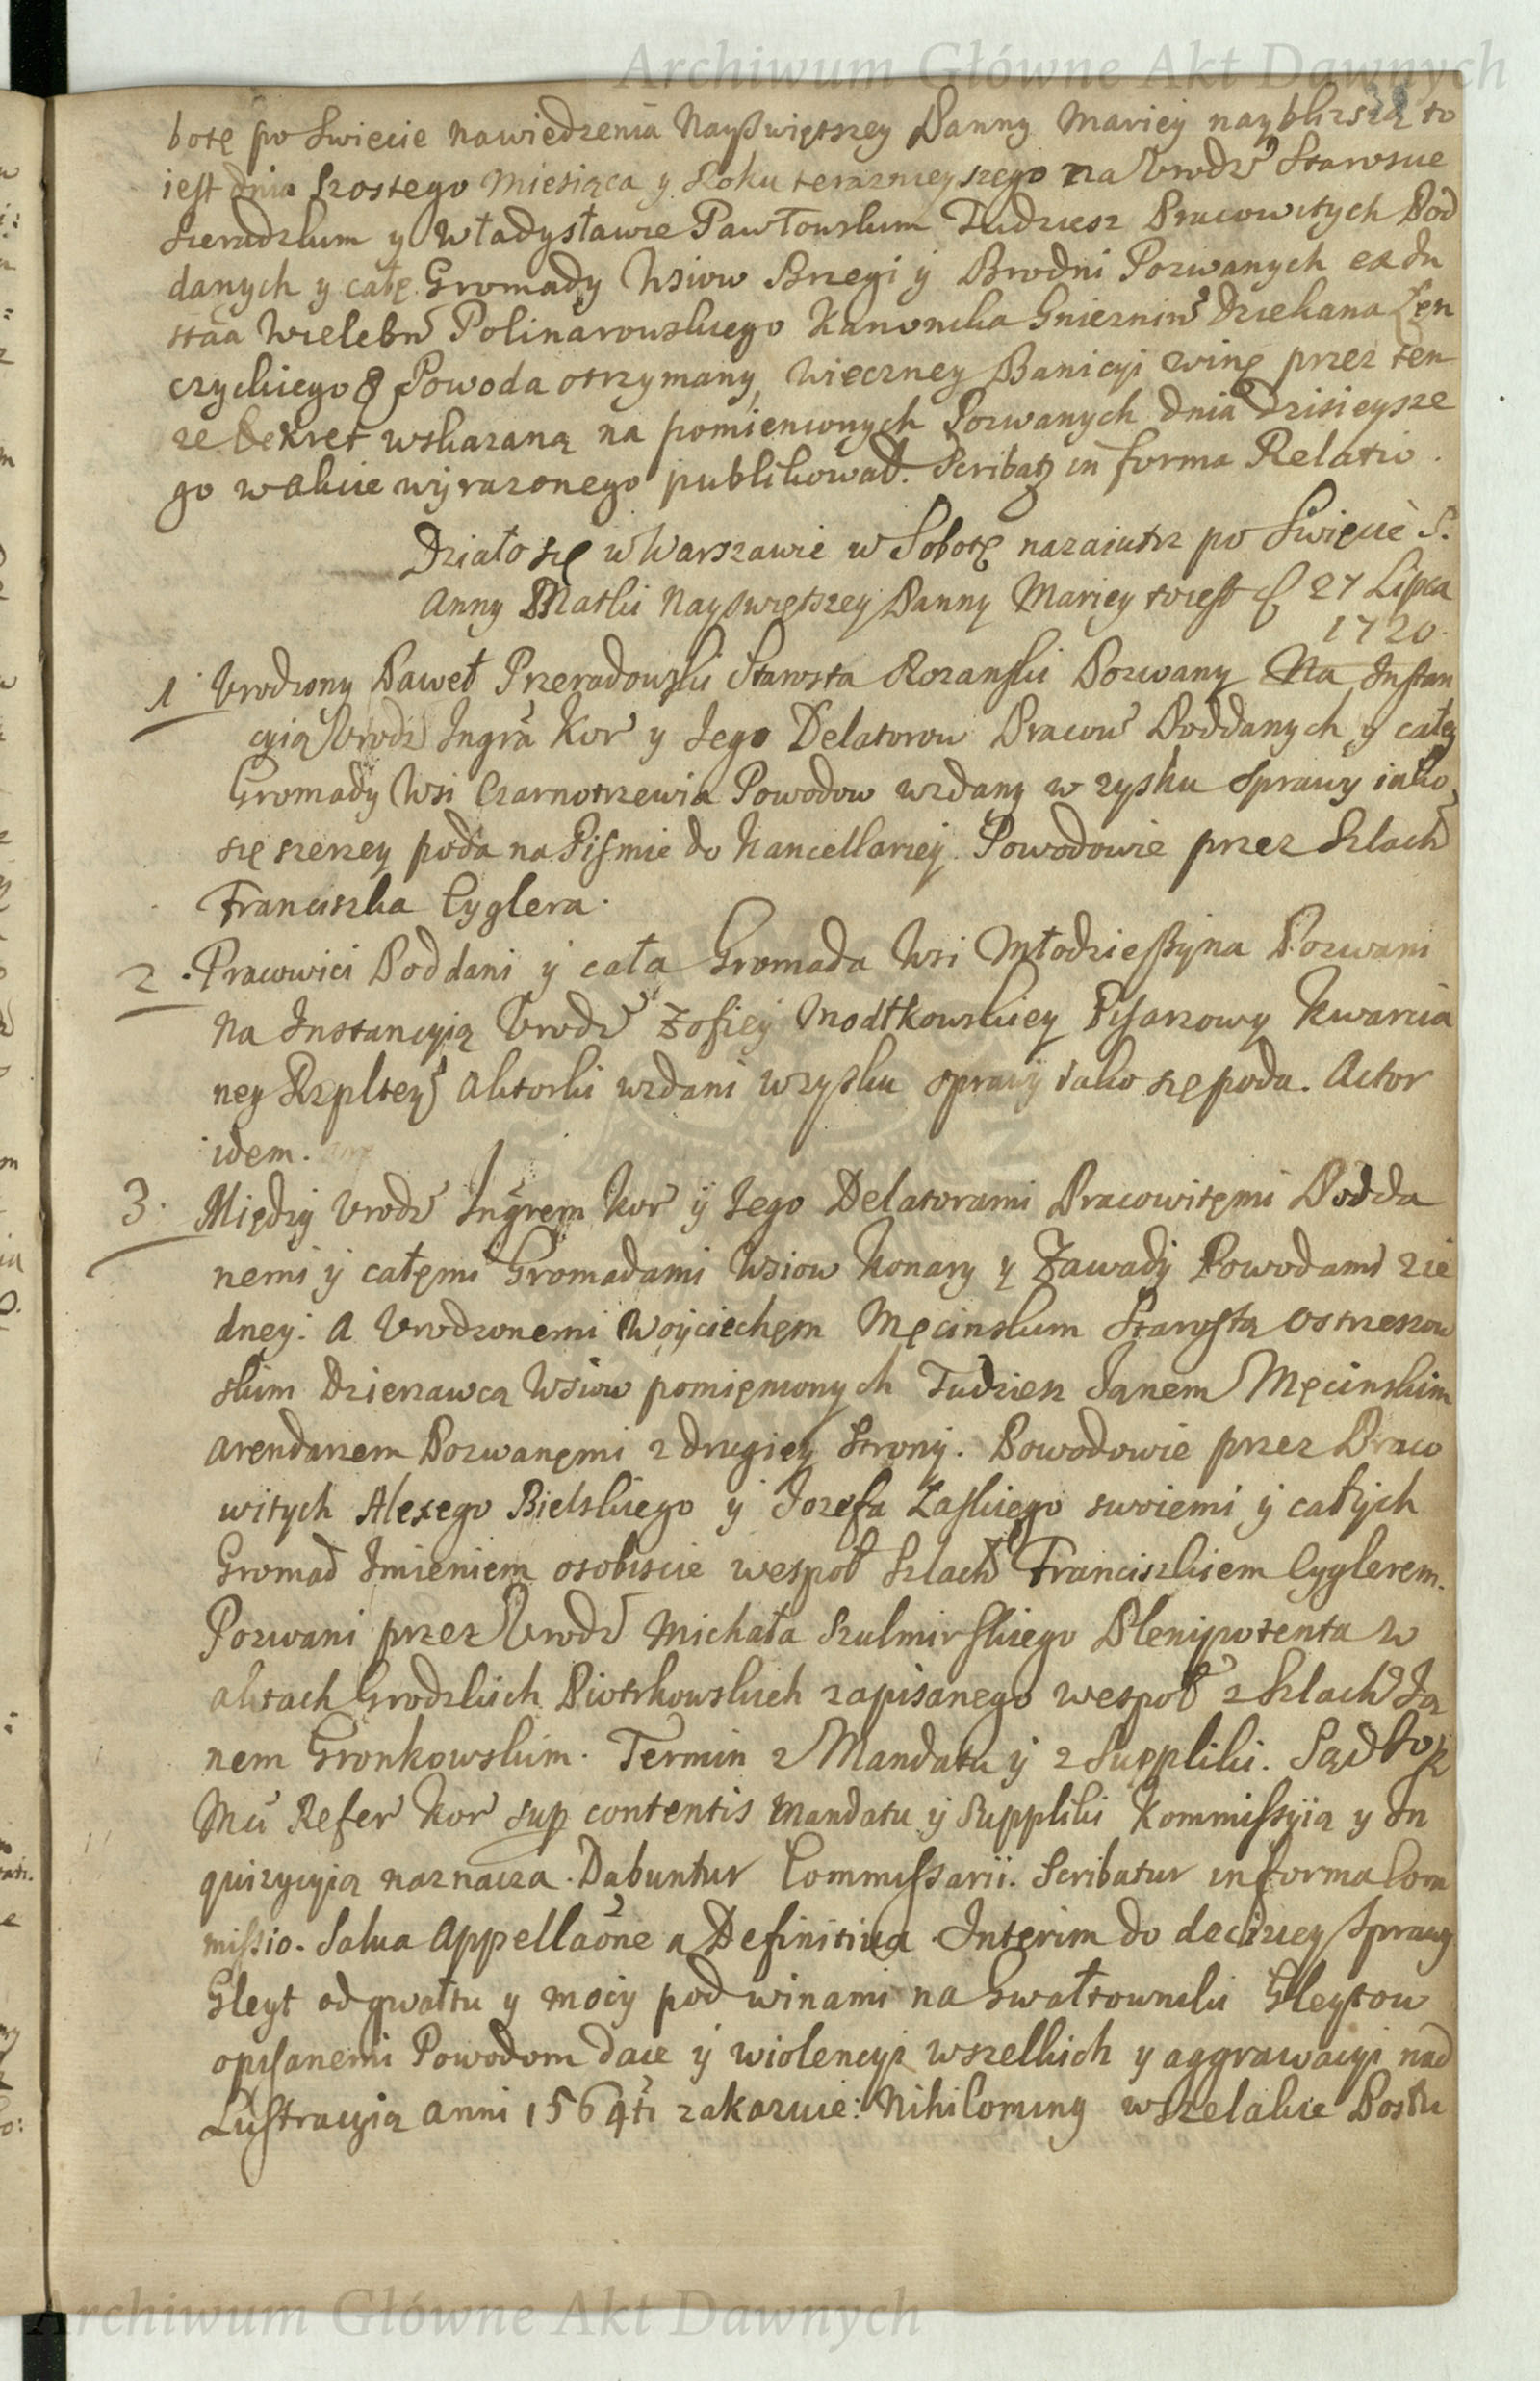 Archiwum Główne Akt Dawnych
botę po Swięcie Nawiedzenia Nayswiętszey Panny Mariey nayblizszą to
iest dnia szostego Miesiąca y Roku terazneyszego na Urodz Starosue
Sieradzkim y Władysławie Pawłowskim Tudziesz Pracowitych Pod
danych y całę Gromady Wsiow Brzegi y Brodni Pozwanych ex in
staa Wielebn Polinarowskiego Kanonika Gniezninṡ Dziekana Łen
czyckiego Powoda otrzymany, wieczney Banicyi winę przez ten
ze Dekret wskazaną na pomienionych Pozwanych dnia Dzisieysze
go w akcie wyrazonego publikował. Scribatz in forma Relatio.
Działo się w Warszawie w Sobotę nazaiutrz po Swięcie S.
Anny Matki Nayswiętszey Panny Mariey toiest d 27 Lipca
1720.
1 Urodzony Paweł Przeradowski Starosta Rozanski Pozwany Na Instan
cyią Urodz Ingra Kor y Jego Delatorow Pracow Poddanych y całey
Gromady Wsi Czarnotrzewia Powodow wzdany w zysku sprawy iako
się szerzey poda na Pismie do Kancellariey. Powodowie przez Szlach
Franciszka Cyglera.
2. Pracowici Poddani y cała Gromada Wsi Młodzieszyna Pozwani
Na Instancyią Urodz Zofiey Modłkowskiey Pisarzowy Kwarcia
ney Rzpltey Aktorki wzdani wzysku sprawy iako się poda. Actor
idem.
3. Między Urodz Ingrem Kor y Jego Delatorami Pracowitemi Podda
nemi y całęmi Gromadami Wsiow Konary y Zawady Powodami z ie
dney: A Urodzonemi Woyciechem Męcinskim Starostą Ostrzeszow
skim Dzierzawcą Wsiow pomięnionych Tudziesz Janem Męcinskim
arendarzem Pozwanęmi z drugiey strony. Powodowie przez Praco
witych Alexego Bielskiego y Jozefa Zaskiego swoiemi y całych
Gromad Imieniem osobiscie wespoł Szlach Franciszkiem Cyglerem.
Pozwani przez Urodz Michała Szulmirskiego Plenipotenta w
aktach Grodzkich Piotrkowskich zapisanego wespoł z Szlach Ja
nem Gronkowskim. Termin z Mandatu y z Suppliki. Sąd
Mci Refer Kor sup contentis Mandatu y Suppliki Kommissyią y In
quizycyią naznacza. Dabuntur Commissarii. Scribatur in forma Com
missio. Salva Appellaone a Definitiva Interim do decizyey sprawy
Gleyt od gwałtu y mocy pod winami na Gwałtowniki Gleytow
opisanemi Powodom daie y wiolencyi wszelkich y aggrawacyi nad
Lustracyią anni 1564ti zakazuie: Nihilominus wszelakie Postu
Archiwum Główne Akt Dawnych